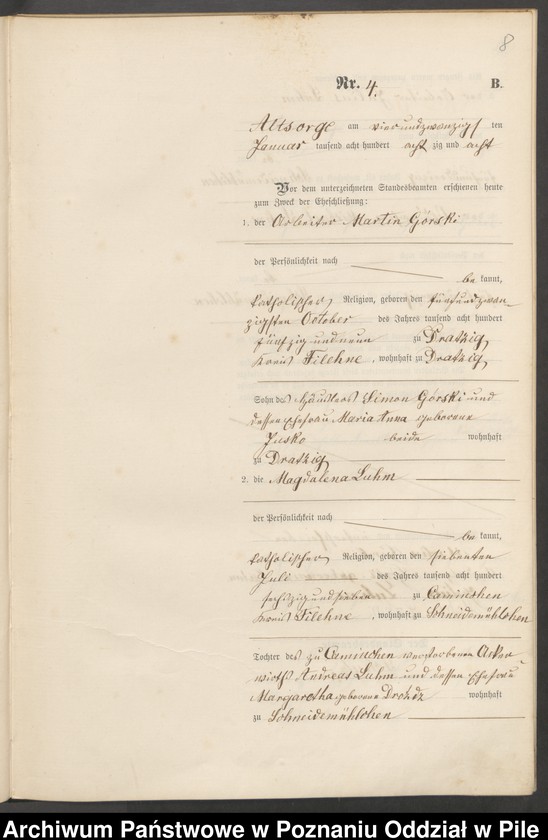 8
Nr. 4. B.
Altsorge am vierundzwanzigsten
Januar tausend acht hundert achtzig und acht
Vor dem unterzeichneten Standesbeamten erschienen heute
zum Zweck der Eheschließung:
1. der Arbeiter Martin Górski
der Persönlichkeit nach
be kannt,
katholischer Religion, geboren den fünfundzwan-
zigsten October des Jahres tausend acht hundert
fünfzig und neun zu Dratzig
Kreis Filehne, wohnhaft zu Dratzig
Sohn des Häuslers Simon Górski und
dessen Ehefrau Maria Anna geborene
Jusko beide wohnhaft
zu Dratzig
2. die Magdalena Luhm
der Persönlichkeit nach
be kannt,
katholischer Religion, geboren den siebenten
Juli des Jahres tausend acht hundert
sechszig und sieben zu Caminchen
Kreis Filehne, wohnhaft zu Schneidemühlchen
Tochter des zu Caminchen verstorbenen Acker
wirths Andreas Luhm und dessen Ehefrau
Margaretha geborene Drożdz wohnhaft
zu Schneidemühlchen
Archiwum Państwowe w Poznaniu Oddział w Pile